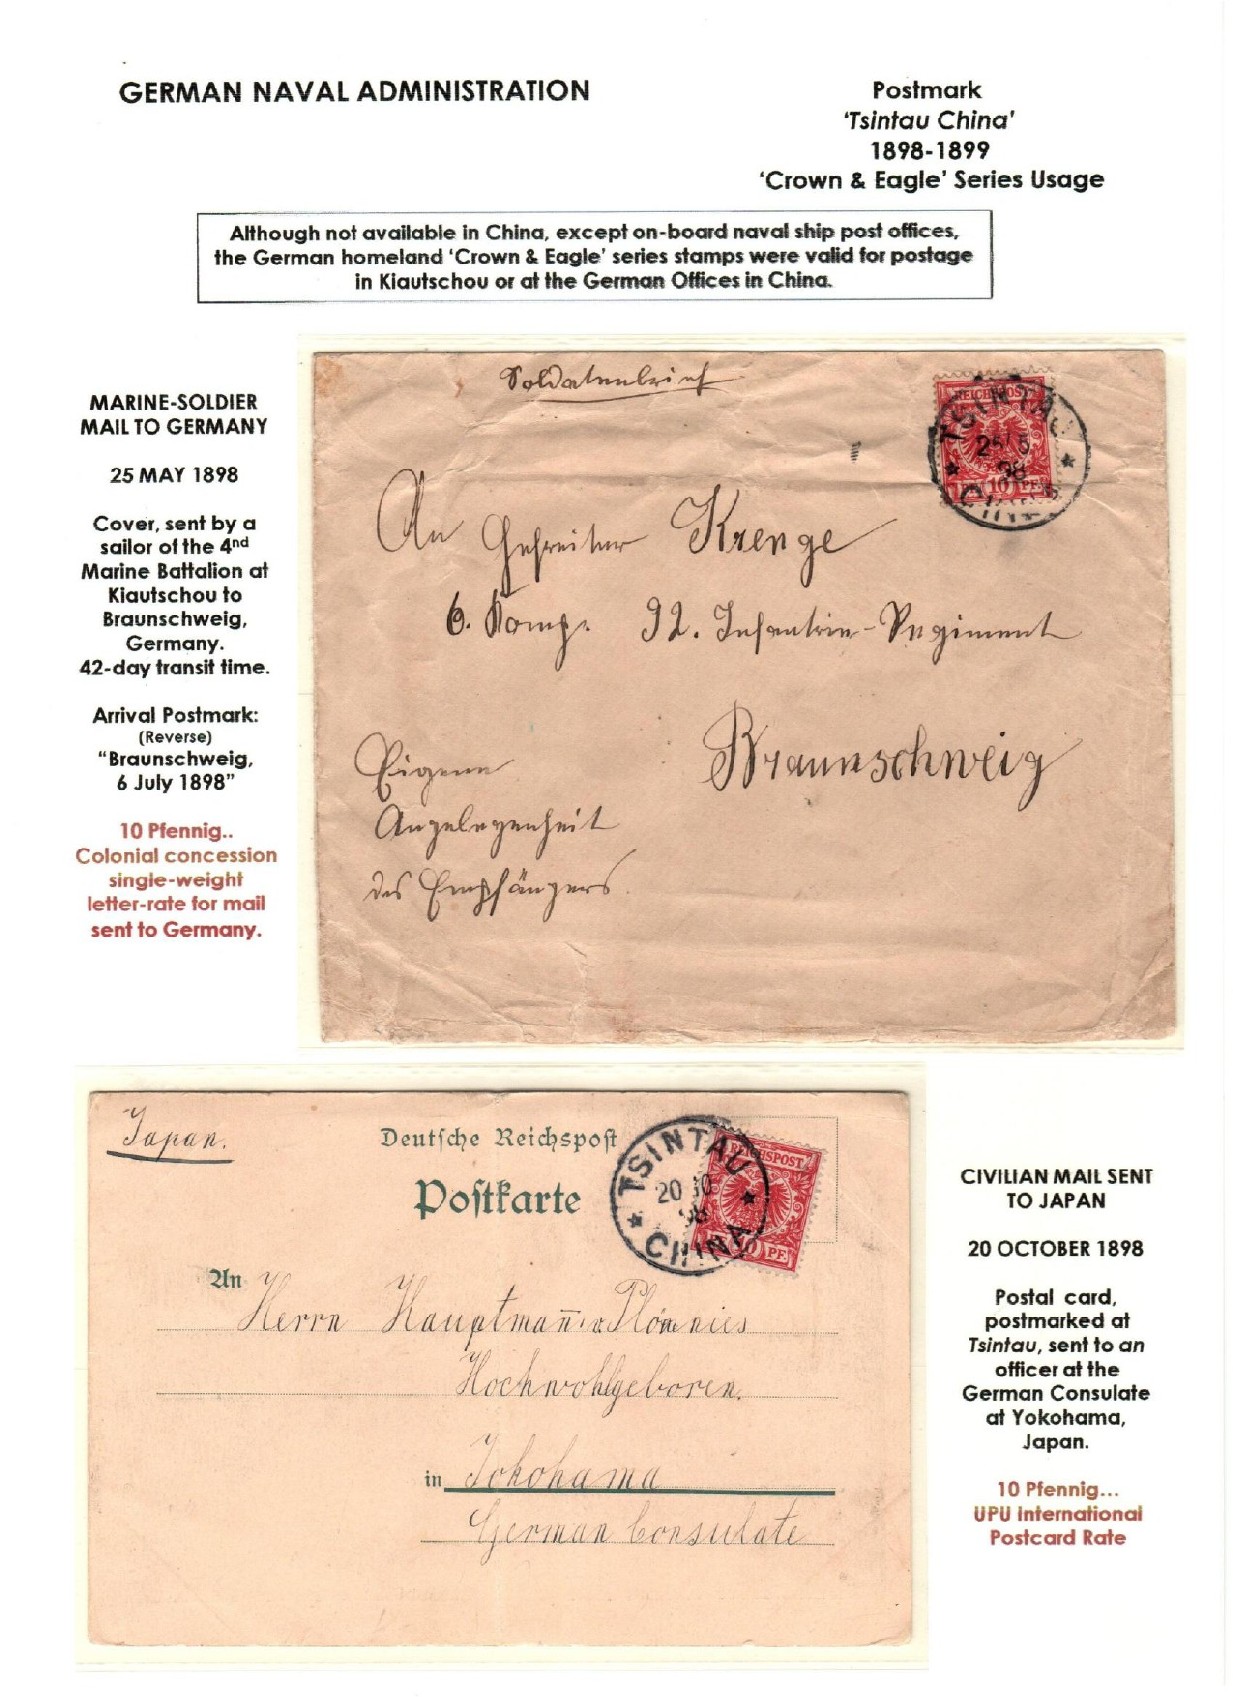 GERMAN NAVAL ADMINISTRATION
Postmark
‘Tsintau China’
1898-1899
‘Crown & Eagle’ Series Usage
Although not available in China, except on-board naval ship post offices,
the German homeland ‘Crown & Eagle’ series stamps were valid for postage
in Kiautschou or at the German Offices in China.
MARINE-SOLDIER
MAIL TO GERMANY
25 MAY 1898
Cover, sent by a
sailor of the 4nd
Marine Battalion at
Kiautschou to
Braunschweig,
Germany.
42-day transit time.
Arrival Postmark:
(Reverse)
“Braunschweig,
6 July 1898”
10 Pfennig..
Colonial concession
single-weight
letter-rate for mail
sent to Germany.
Soldatenbrief
REICHSPOST
10 PF
TSINTAU
25/5
98
CHINA
An Gefreiter Krenge
6. Komp. 92. Infantrie-Regiment
Braunschweig
Eigene
Angelegenheit
des Empfängers.
Japan.
Deutsche Reichspost
Postkarte
REICHSPOST
10 PF.
TSINTAU
20 10
98
CHINA
An Herrn Hauptmann v. Plönnies
Hochwohlgeboren.
in Yokohama
German Consulate
CIVILIAN MAIL SENT
TO JAPAN
20 OCTOBER 1898
Postal card,
postmarked at
Tsintau, sent to an
officer at the
German Consulate
at Yokohama,
Japan.
10 Pfennig...
UPU International
Postcard Rate